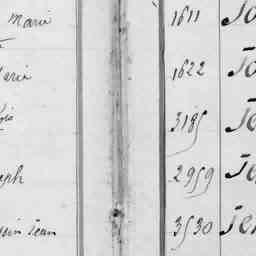 Marie 1611 Jo
Marie 1622 Jo
3185 Je
eph 2959 Je
Jean 3530 Je